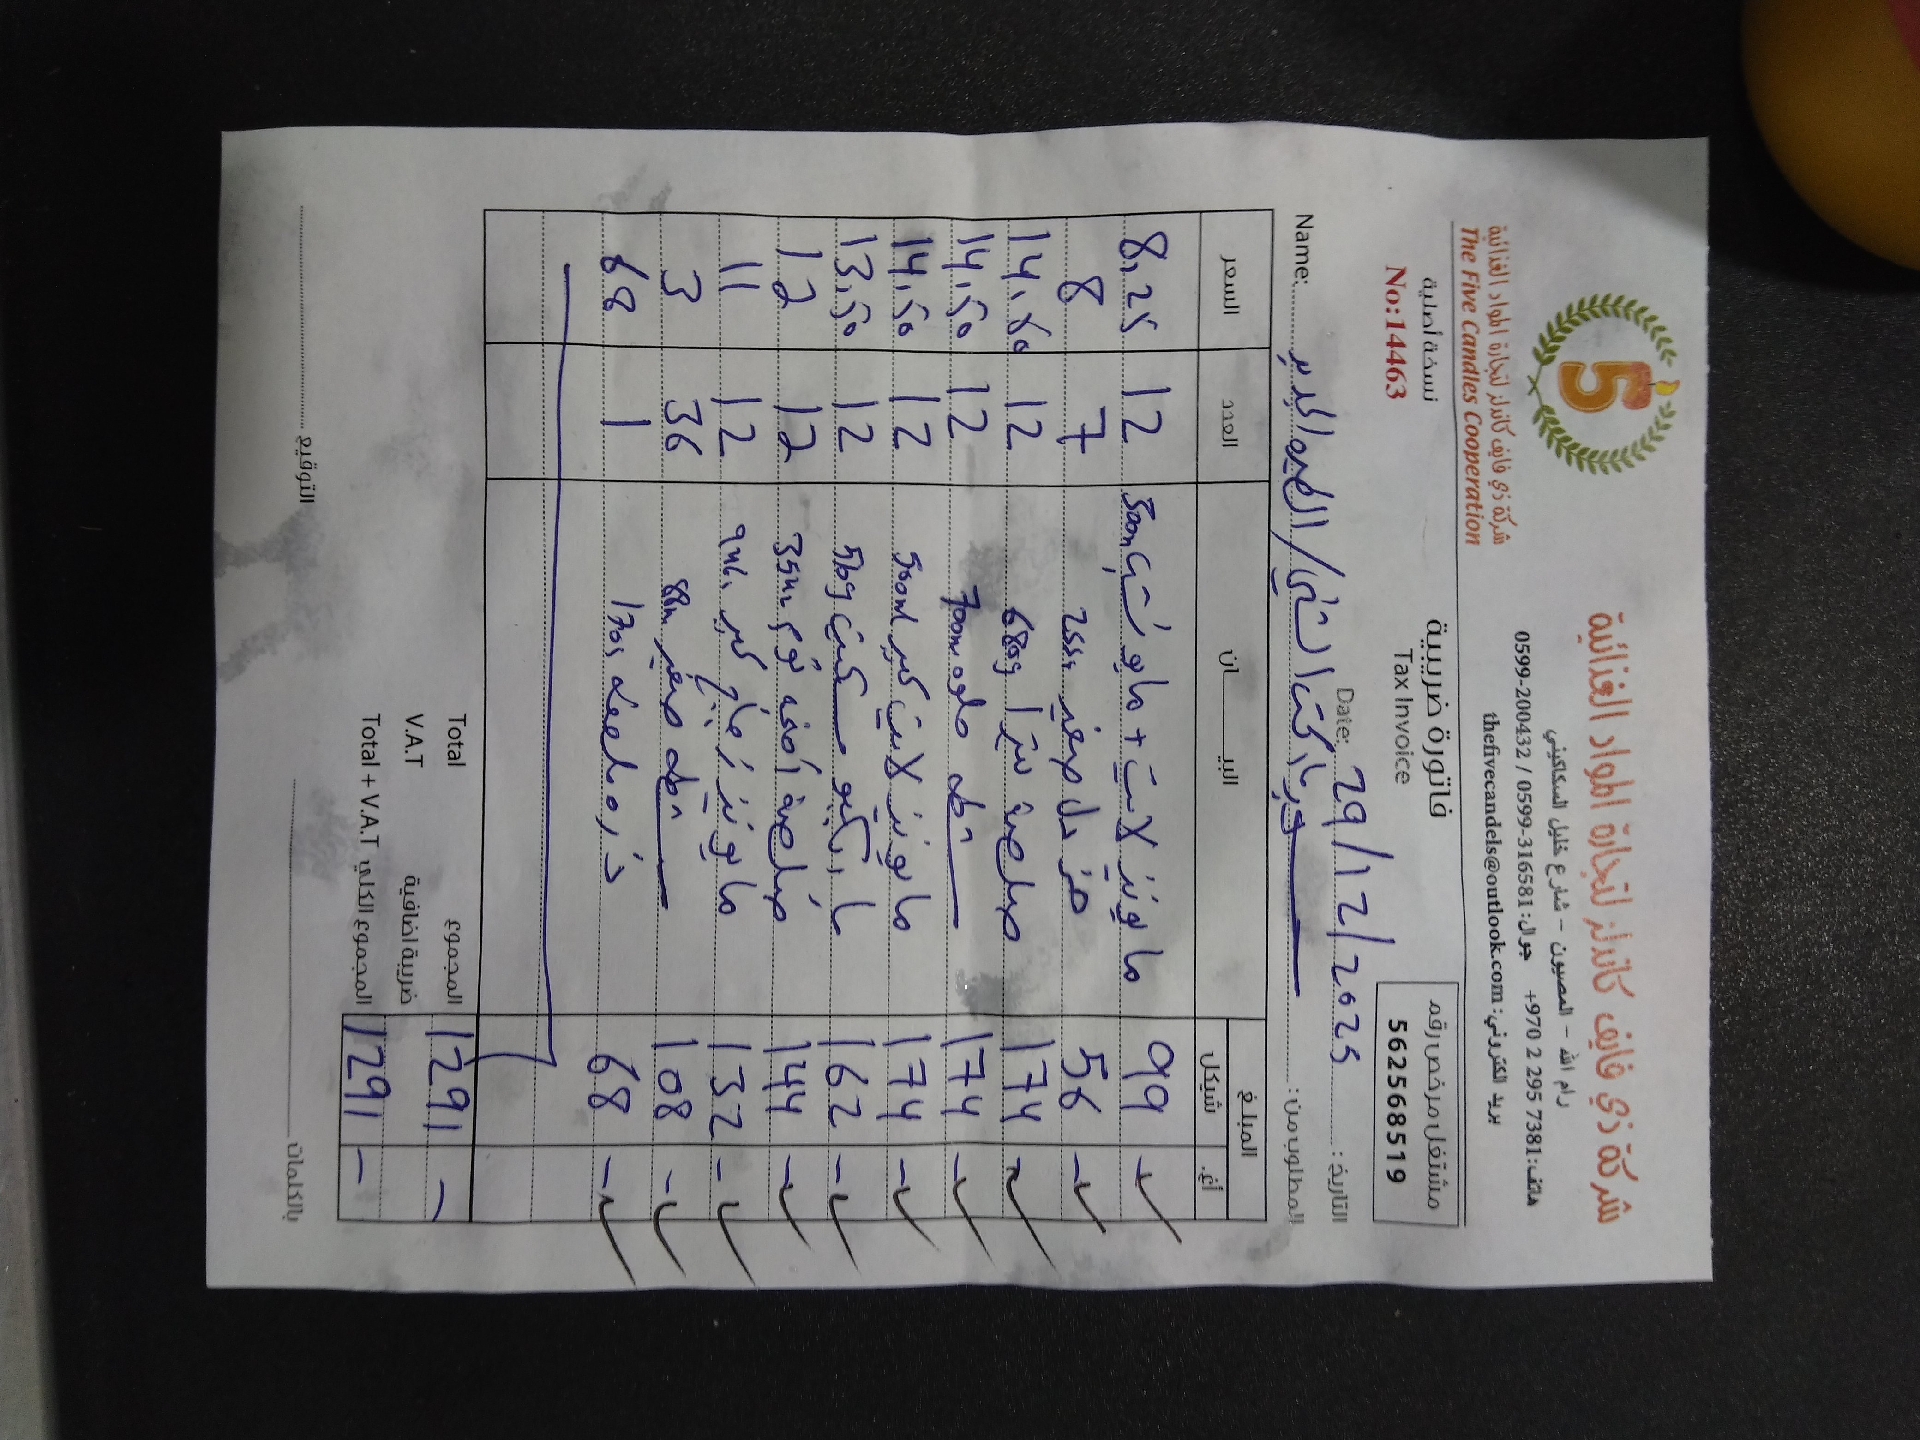 شركة ذي فايف كاندلز لتجارة المواد الغذائية
رام الله - المصيون - شارع خليل السكاكيني
هاتف: 7381 295 2 970+ جوال: 0599-316581 / 0599-200432
بريد الكتروني: thefivecandels@outlook.com
5
شركة ذي فايف كاندلز لتجارة المواد الغذائية
The Five Candles Cooperation
مشتغل مرخص رقم
562568519
فاتورة ضريبية
Tax Invoice
نسخة أصلية
No:14463
التاريخ: 29/12/2025 Date:
المطلوب من: سوبر ماركت / Name:
المبلغ
شيكل أغ. البيـــــــان العدد السعر
99 - مايونيز لايت + مايو 500m 12 8,25
56 - خردل صغير 7 8
174 - صلصة 680g 12 14,50
174 - 700m 12 14,50
174 - مايونيز لايت كبير 500ml 12 14,50
162 - باربكيو 510g 12 13,50
144 - صلصة 354ml 12 12
132 - مايونيز كبير 946 12 11
108 - صغير 88m 36 3
68 - 170g 1 68
المجموع Total 1291 -
ضريبة اضافية V.A.T
المجموع الكلي Total + V.A.T 1291 -
بالكلمات
التوقيع